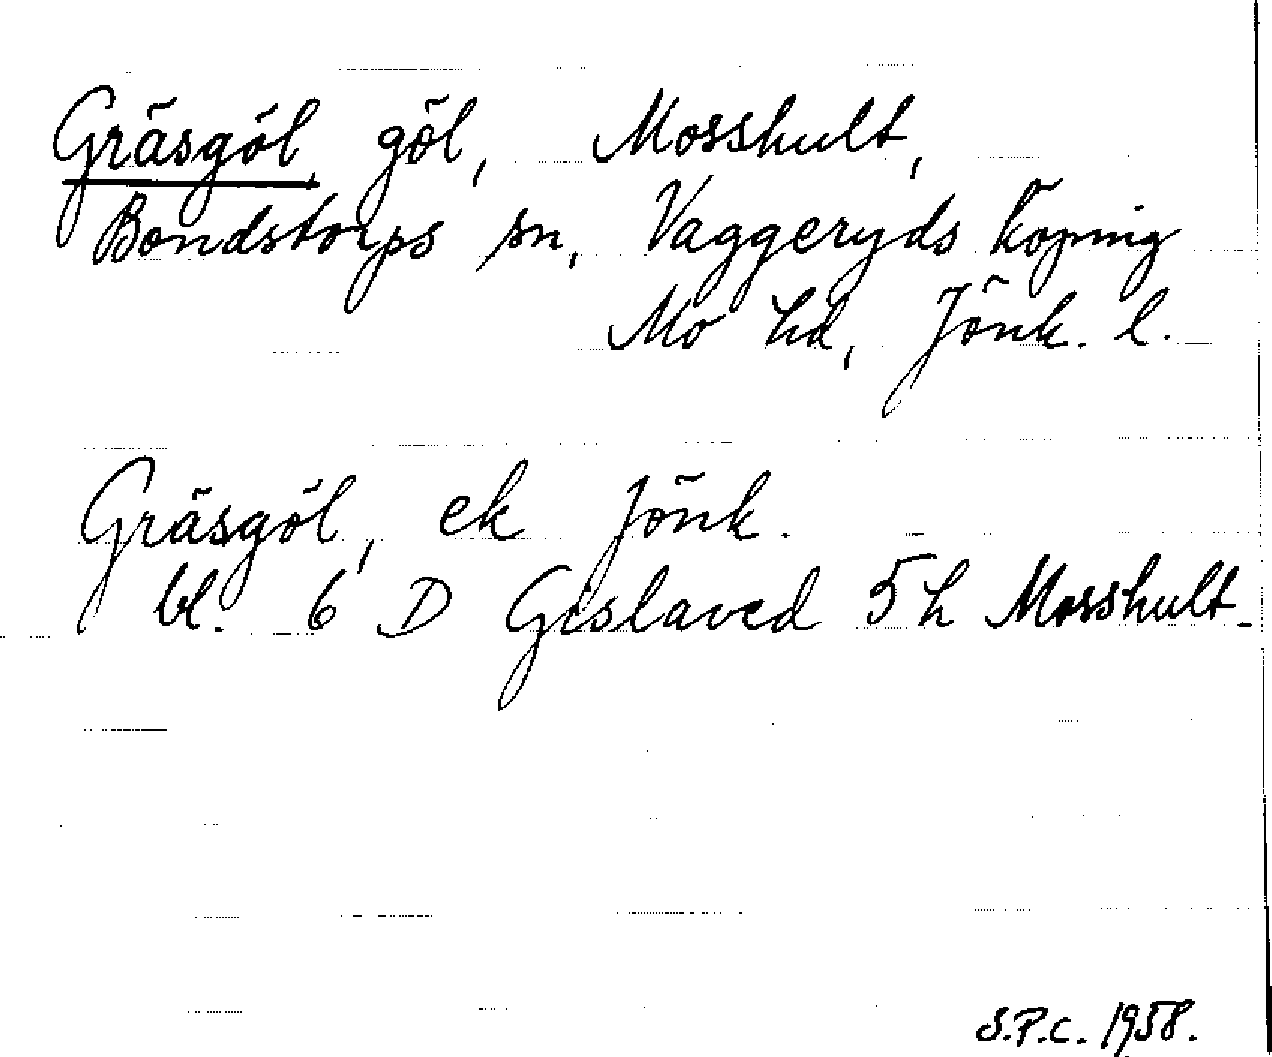 Gräsgöl, göl, Mosshult,
Bondstorps sn, Vaggeryds köping
Mo hd, Jönk. l.
Gräsgöl, ek Jönk.
bl. 6 D Gislaved 5 h Mosshult.
S.P.C. 1958.